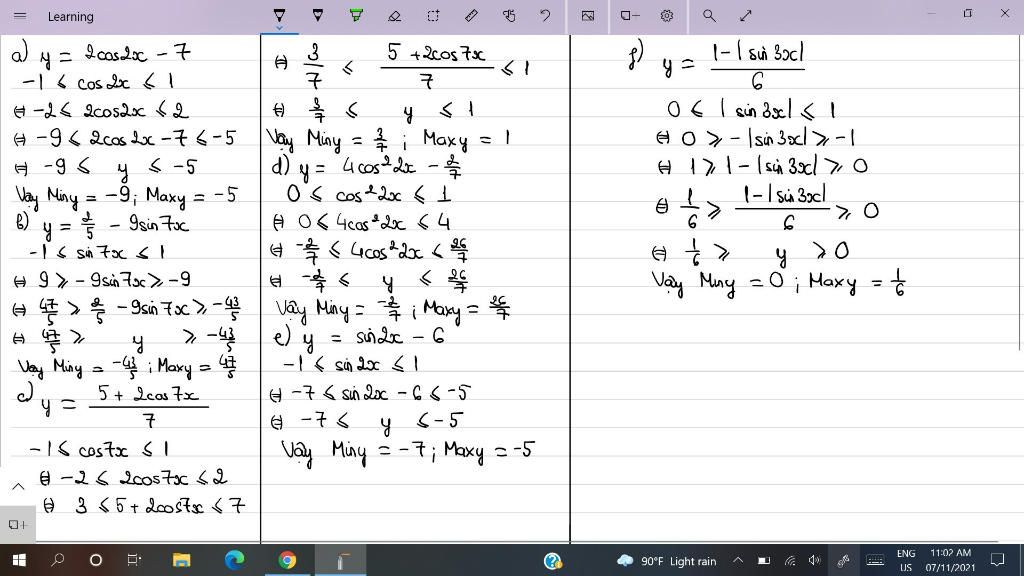 Learning
a) y = 2cos2x - 7
-1 ≤ cos2x ≤ 1
⇔ -2 ≤ 2cos2x ≤ 2
⇔ -9 ≤ 2cos2x - 7 ≤ -5
⇔ -9 ≤ y ≤ -5
Vậy Miny = -9; Maxy = -5
b) y = 2/5 - 9sin7x
-1 ≤ sin7x ≤ 1
⇔ 9 ≥ -9sin7x ≥ -9
⇔ 47/5 ≥ 2/5 - 9sin7x ≥ -43/5
⇔ 47/5 ≥ y ≥ -43/5
Vậy Miny = -43/5; Maxy = 47/5
c) y = (5 + 2cos7x)/7
-1 ≤ cos7x ≤ 1
⇔ -2 ≤ 2cos7x ≤ 2
⇔ 3 ≤ 5 + 2cos7x ≤ 7
⇔ 3/7 ≤ (5 + 2cos7x)/7 ≤ 1
⇔ 3/7 ≤ y ≤ 1
Vậy Miny = 3/7; Maxy = 1
d) y = 4cos²2x - 2/7
0 ≤ cos²2x ≤ 1
⇔ 0 ≤ 4cos²2x ≤ 4
⇔ -2/7 ≤ 4cos²2x ≤ 26/7
⇔ -2/7 ≤ y ≤ 26/7
Vậy Miny = -2/7; Maxy = 26/7
e) y = sin2x - 6
-1 ≤ sin2x ≤ 1
⇔ -7 ≤ sin2x - 6 ≤ -5
⇔ -7 ≤ y ≤ -5
Vậy Miny = -7; Maxy = -5
f) y = (1 - |sin3x|)/6
0 ≤ |sin3x| ≤ 1
⇔ 0 ≥ -|sin3x| ≥ -1
⇔ 1 ≥ 1 - |sin3x| ≥ 0
⇔ 1/6 ≥ (1 - |sin3x|)/6 ≥ 0
⇔ 1/6 ≥ y ≥ 0
Vậy Miny = 0; Maxy = 1/6
90°F Light rain
ENG
US
11:02 AM
07/11/2021